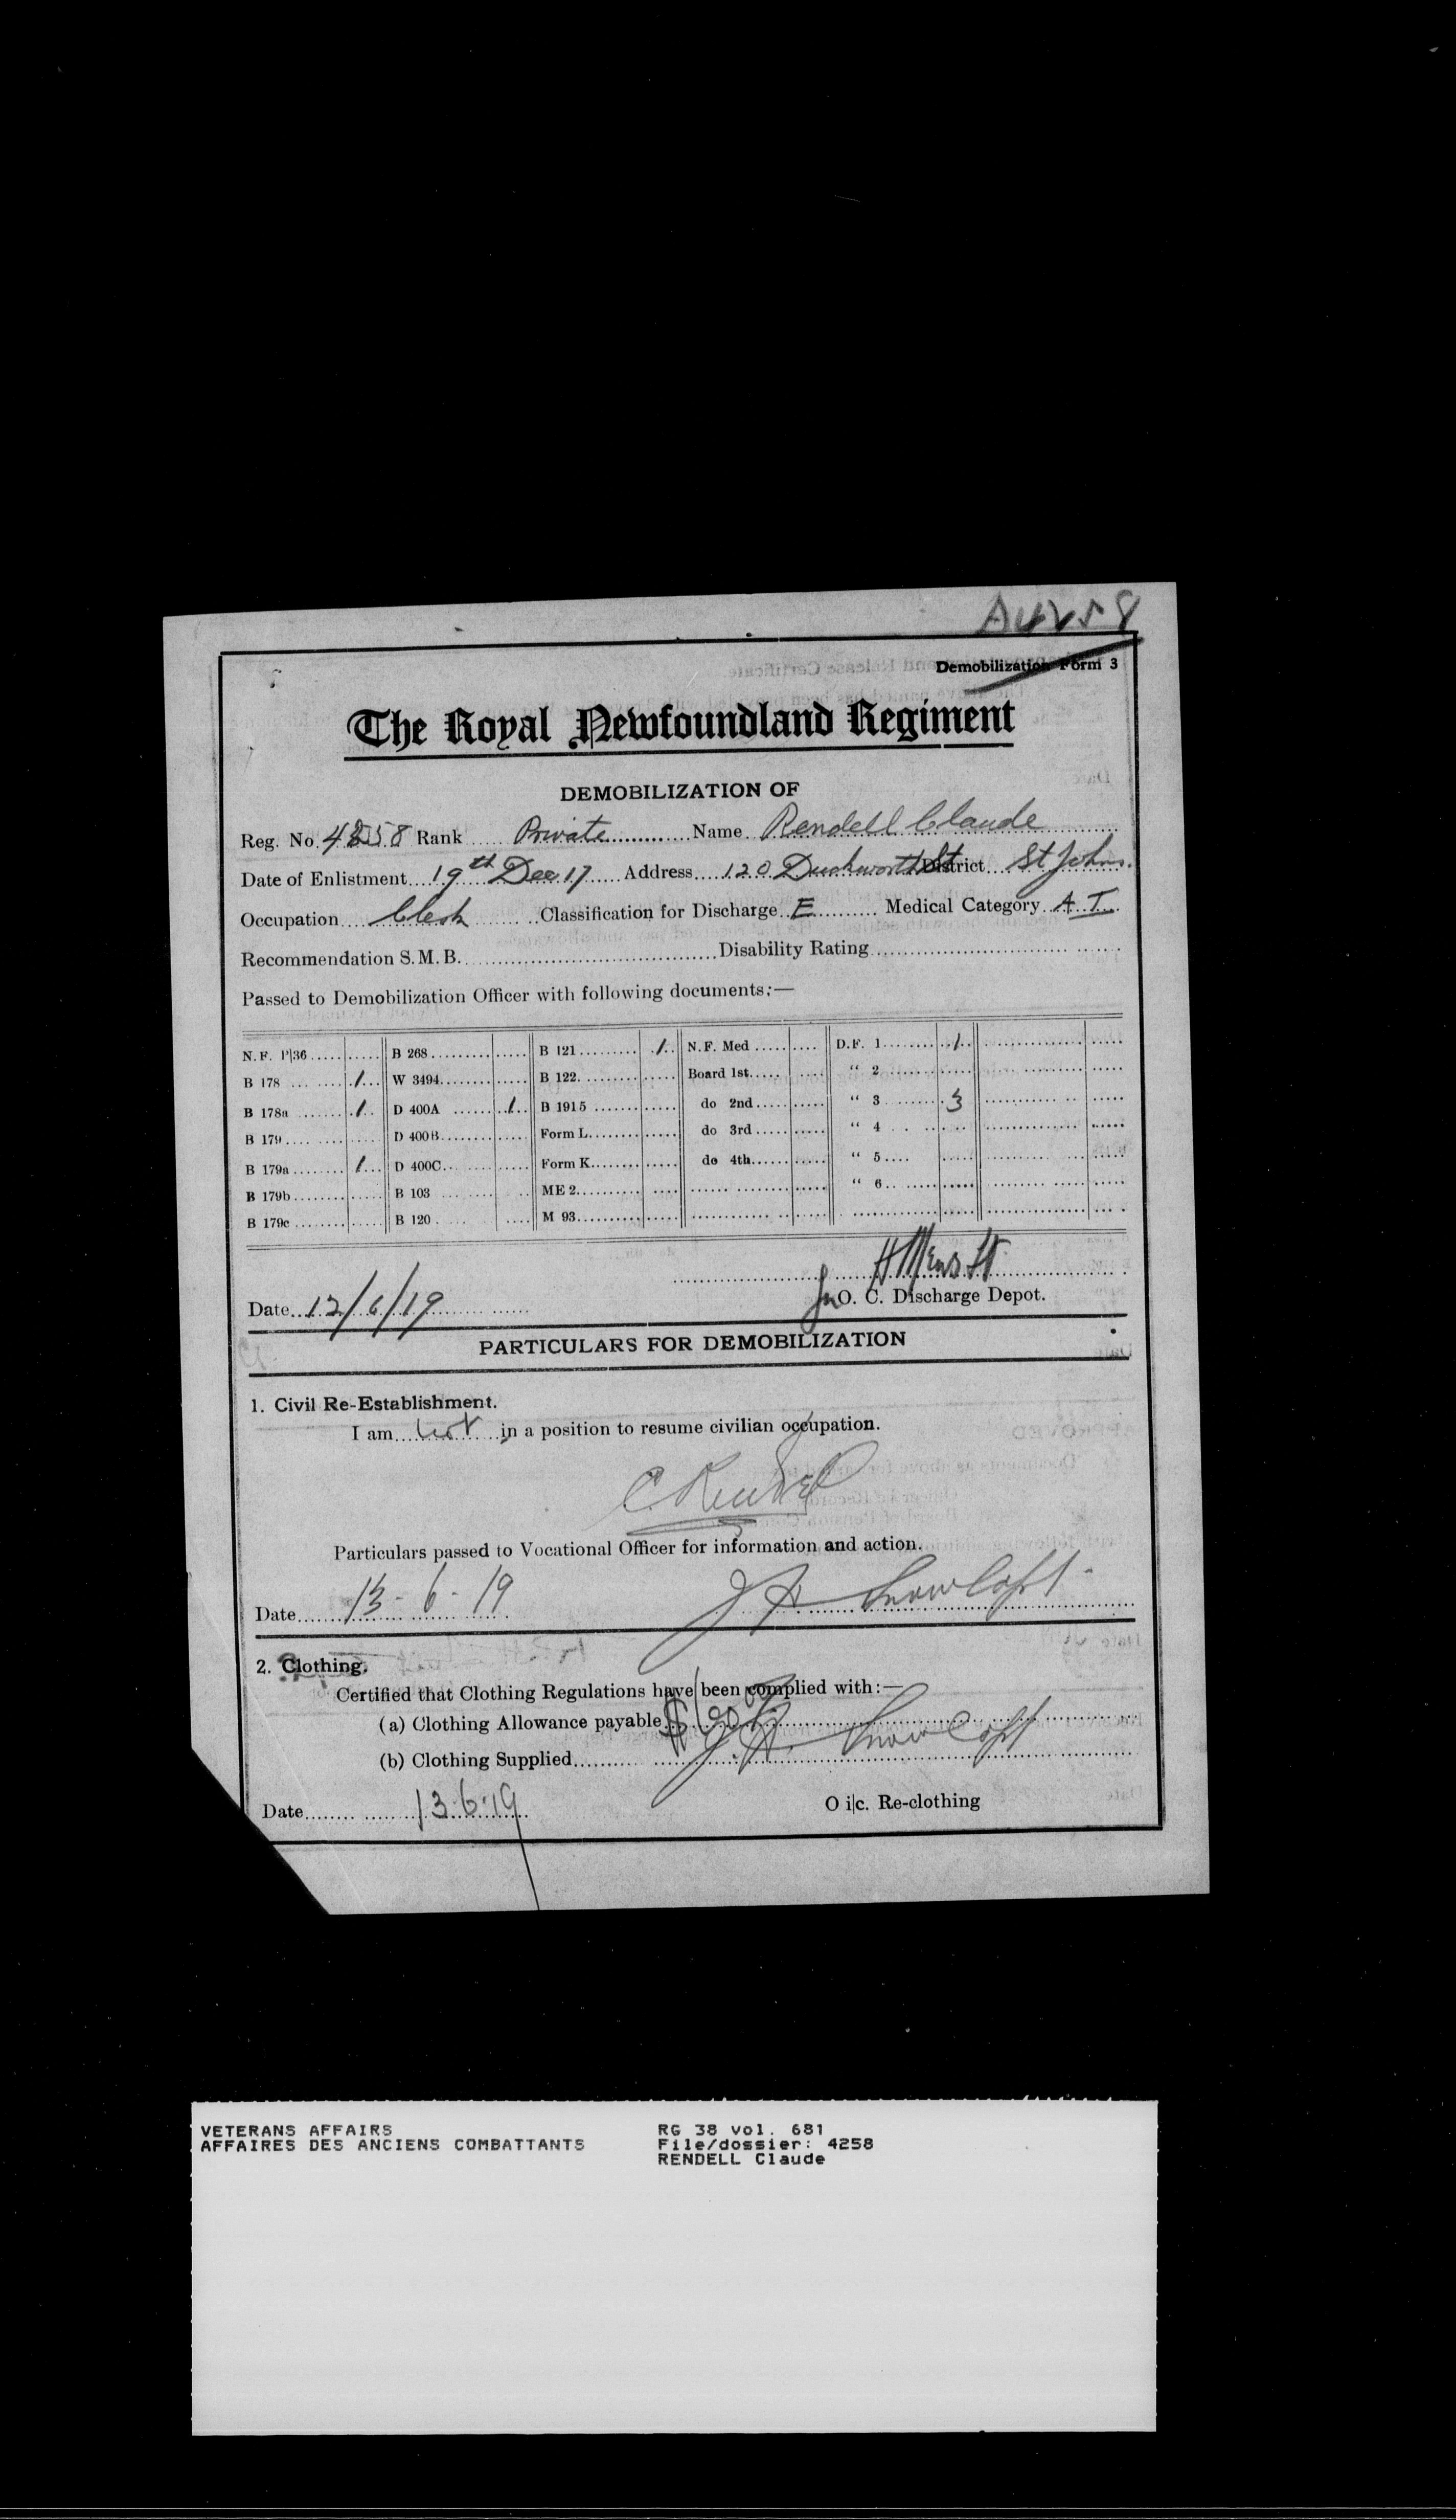 A4258
Demobilization Form 3
The Royal Newfoundland Regiment
DEMOBILIZATION OF
Reg. No. 4258 Rank Private Name Rendell Claude
Date of Enlistment 19th Dec 17 Address 120 Duckworth St District St Johns.
Occupation Clerk Classification for Discharge E Medical Category A I
Recommendation S.M.B. Disability Rating
Passed to Demobilization Officer with following documents:—
N.F. P|36 B 268 B 121 1 N.F. Med D.F. 1 1
B 178 1 W 3494 B 122 Board 1st “ 2
B 178a 1 D 400A 1 B 1915 do 2nd “ 3 3
B 179 D 400B Form L do 3rd “ 4
B 179a 1 D 400C Form K do 4th “ 5
B 179b B 103 ME 2 “ 6
B 179c B 120 M 93
Date 12/6/19 for O. C. Discharge Depot.
PARTICULARS FOR DEMOBILIZATION
1. Civil Re-Establishment.
I am not in a position to resume civilian occupation.
C. Rendell
Particulars passed to Vocational Officer for information and action.
Date 13-6-19 Snow Capt.
2. Clothing.
Certified that Clothing Regulations have been complied with:—
(a) Clothing Allowance payable $60.00
(b) Clothing Supplied Snow Capt
Date 13.6.19 O i|c. Re-clothing
VETERANS AFFAIRS RG 38 vol. 681
AFFAIRES DES ANCIENS COMBATTANTS File/dossier: 4258
RENDELL Claude